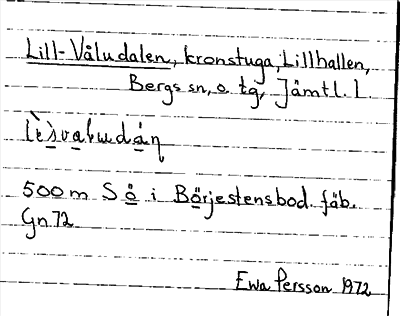 Lill-Våludalen, kronstuga, Lillhallen,
Bergs sn, o. tg, Jämtl. l.
500 m S o i Börjestensbod. fäb.
Gn.72
Ewa Persson 1972